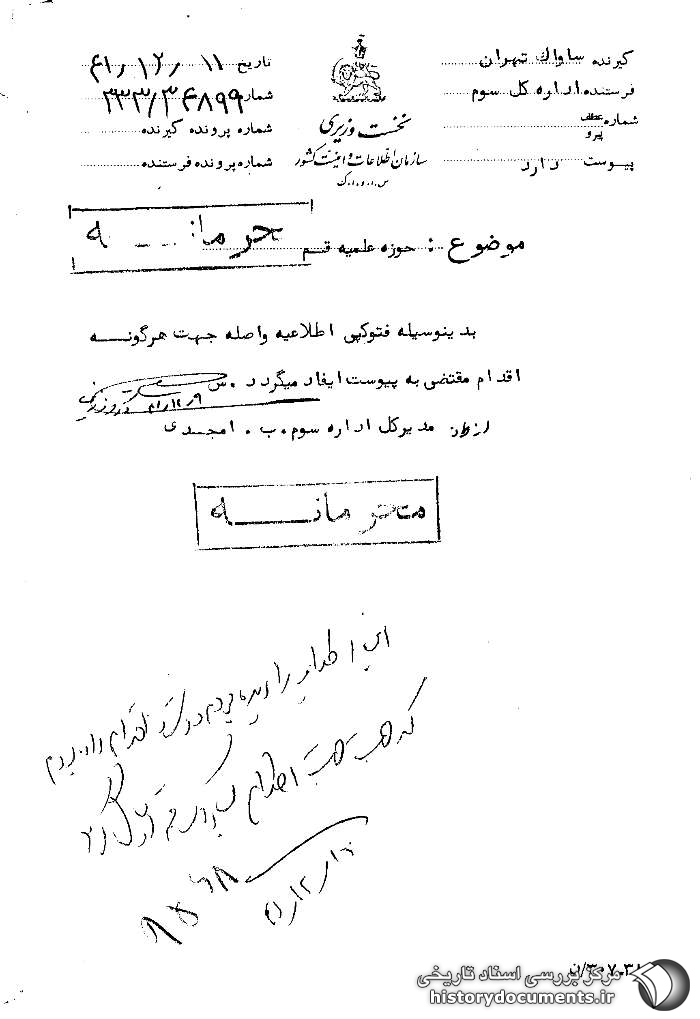 گیرنده ساواك تهران
فرستنده اداره كل سوم
شماره عطف پیرو
پیوست دارد
نخست وزیری
سازمان اطلاعات و امنیت کشور
س.ا.و.ا.ک
تاریخ ۱۱ / ۱۲ / ۴۱
شماره ۳۳۳/۳۴۸۹۹
شماره پرونده گیرنده
شماره پرونده فرستنده
محرمانه
موضوع : حوزه علمیه قم
بدینوسیله فتوکپی اطلاعیه واصله جهت هرگونه
اقدام مقتضی به پیوست ایفاد میگردد .س
۹ر۱۲ر۴۱
از طرف مدیرکل اداره سوم.ب . امجدی
محرمانه
این اطلاعیه را دیده بودم و دستور اقدام داده بودم
که جهت اطلاع
۱۲ر۴۱
مرکز بررسی اسناد تاریخی
historydocuments.ir